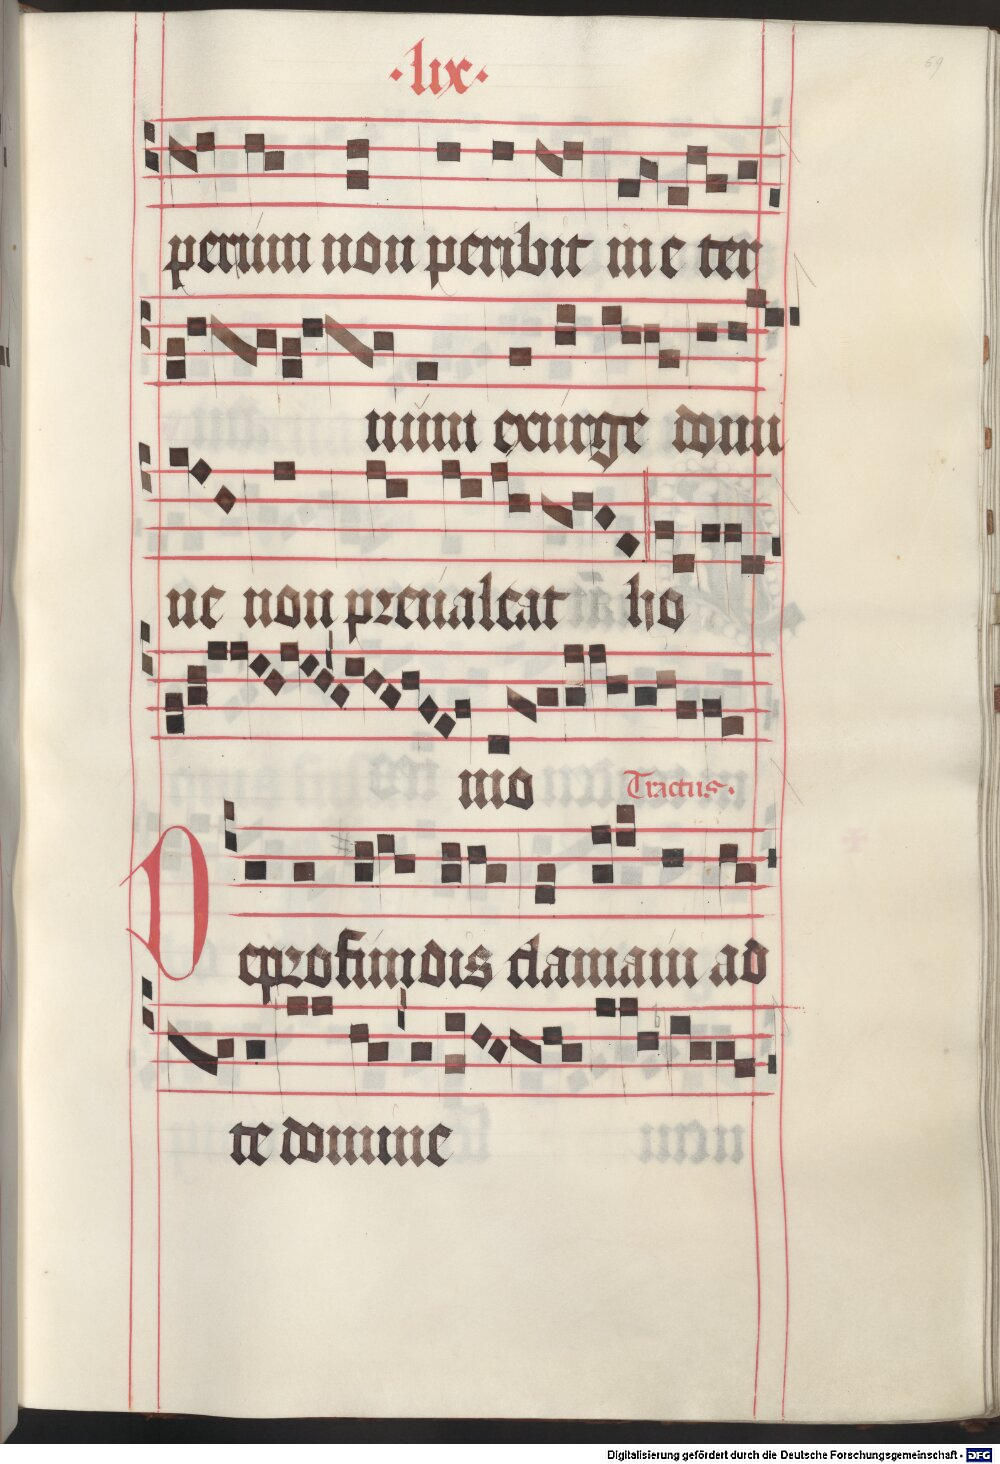 ·lix·
59
perum non peribit in e ter
num exurge domi
ne non preualeat ho
mo Tractus.
De profundis clamaui ad
te domine
Digitalisierung gefördert durch die Deutsche Forschungsgemeinschaft - DFG